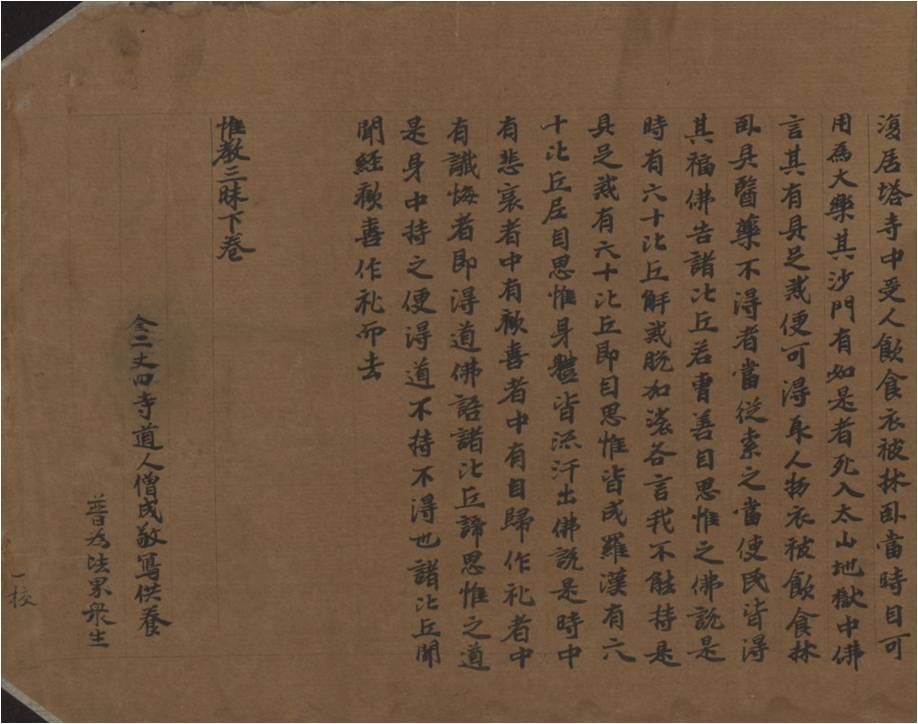 復居塔寺中受人飲食衣被牀卧當時自可
用為大樂其沙門有如是者死入太山地獄中佛
言其有具足戒便可得取人物衣被飲食牀
卧具醫藥不得者當從索之當使民皆得
其福佛告諸比丘若曹善自思惟之佛說是
時有六十比丘解戒脫加沙各言我不能持是
具足戒有六十比丘即自思惟皆成羅漢有六
十比丘居自思惟身體皆流汗出佛說是時中
有悲哀者中有歡喜者中有自歸作礼者中
有懺悔者即得道佛語諸比丘諦思惟之道
是身中持之便得道不持不得也諸比丘聞
聞經歡喜作礼而去
惟教三昧下卷
二丈四寺道人僧成敬寫供養
普為法界眾生
一校